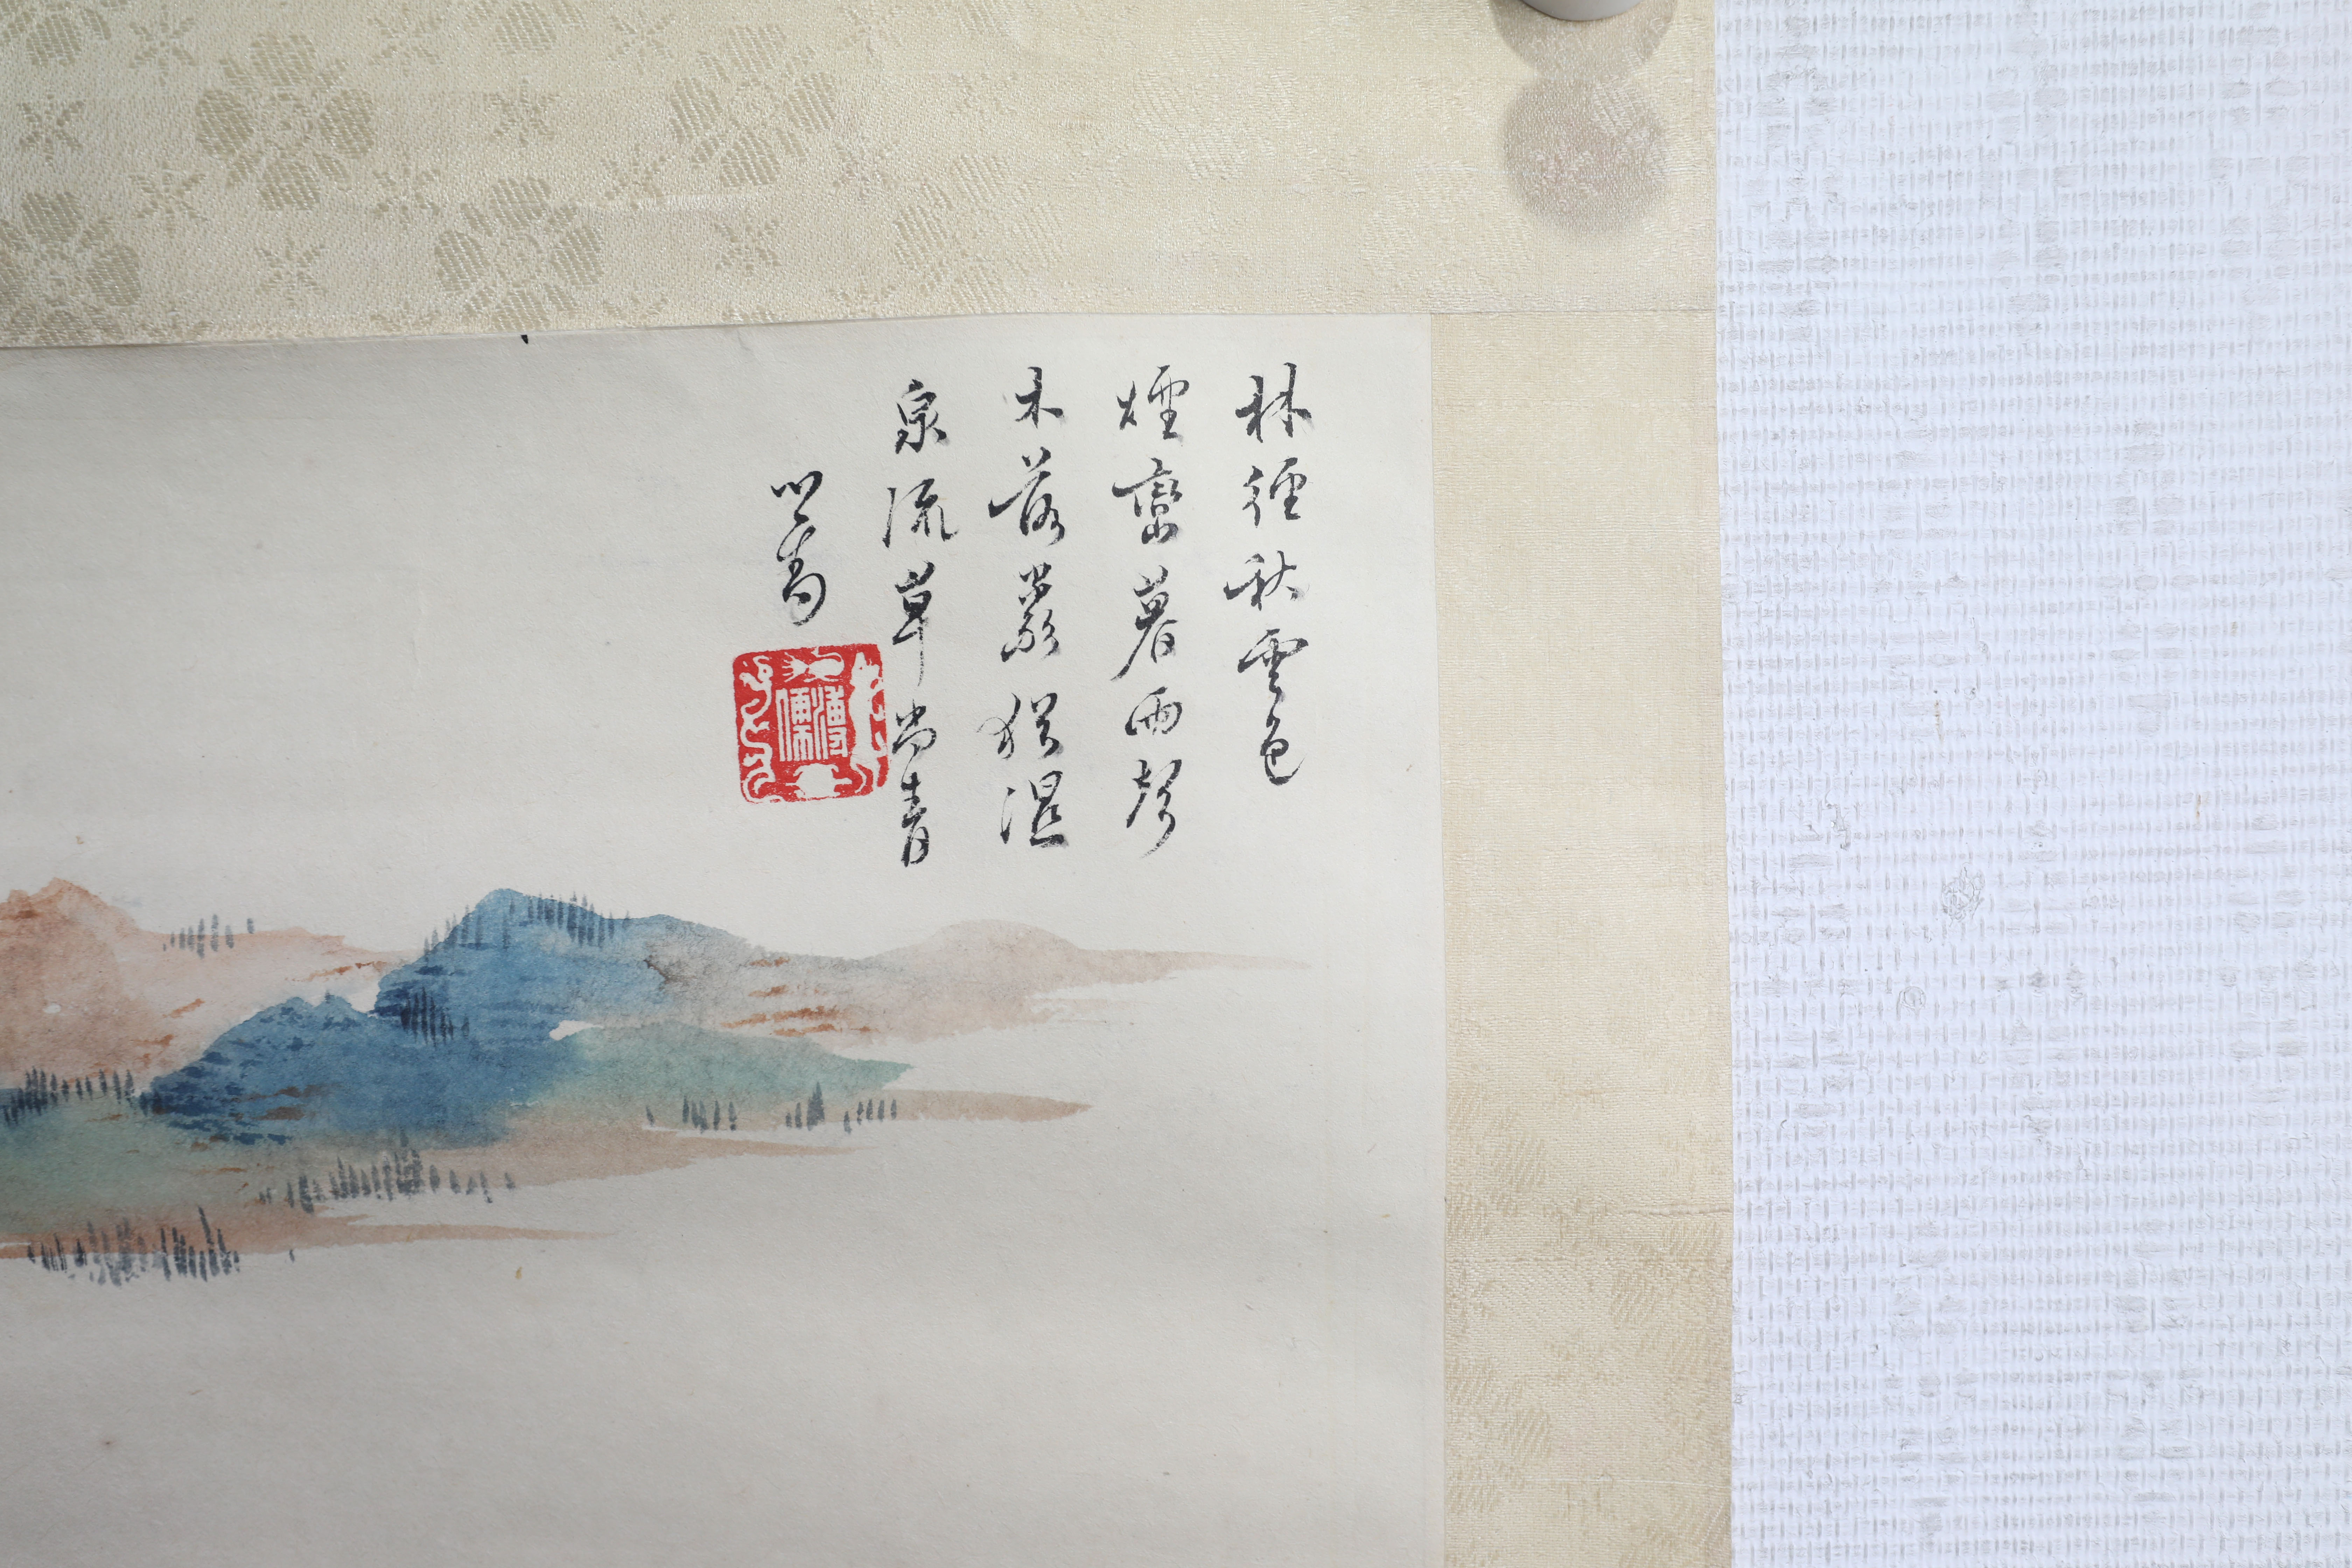 林徑秋雲色
煙巒暮雨聲
木落巖猶濕
泉流草尚青
心畬
溥儒